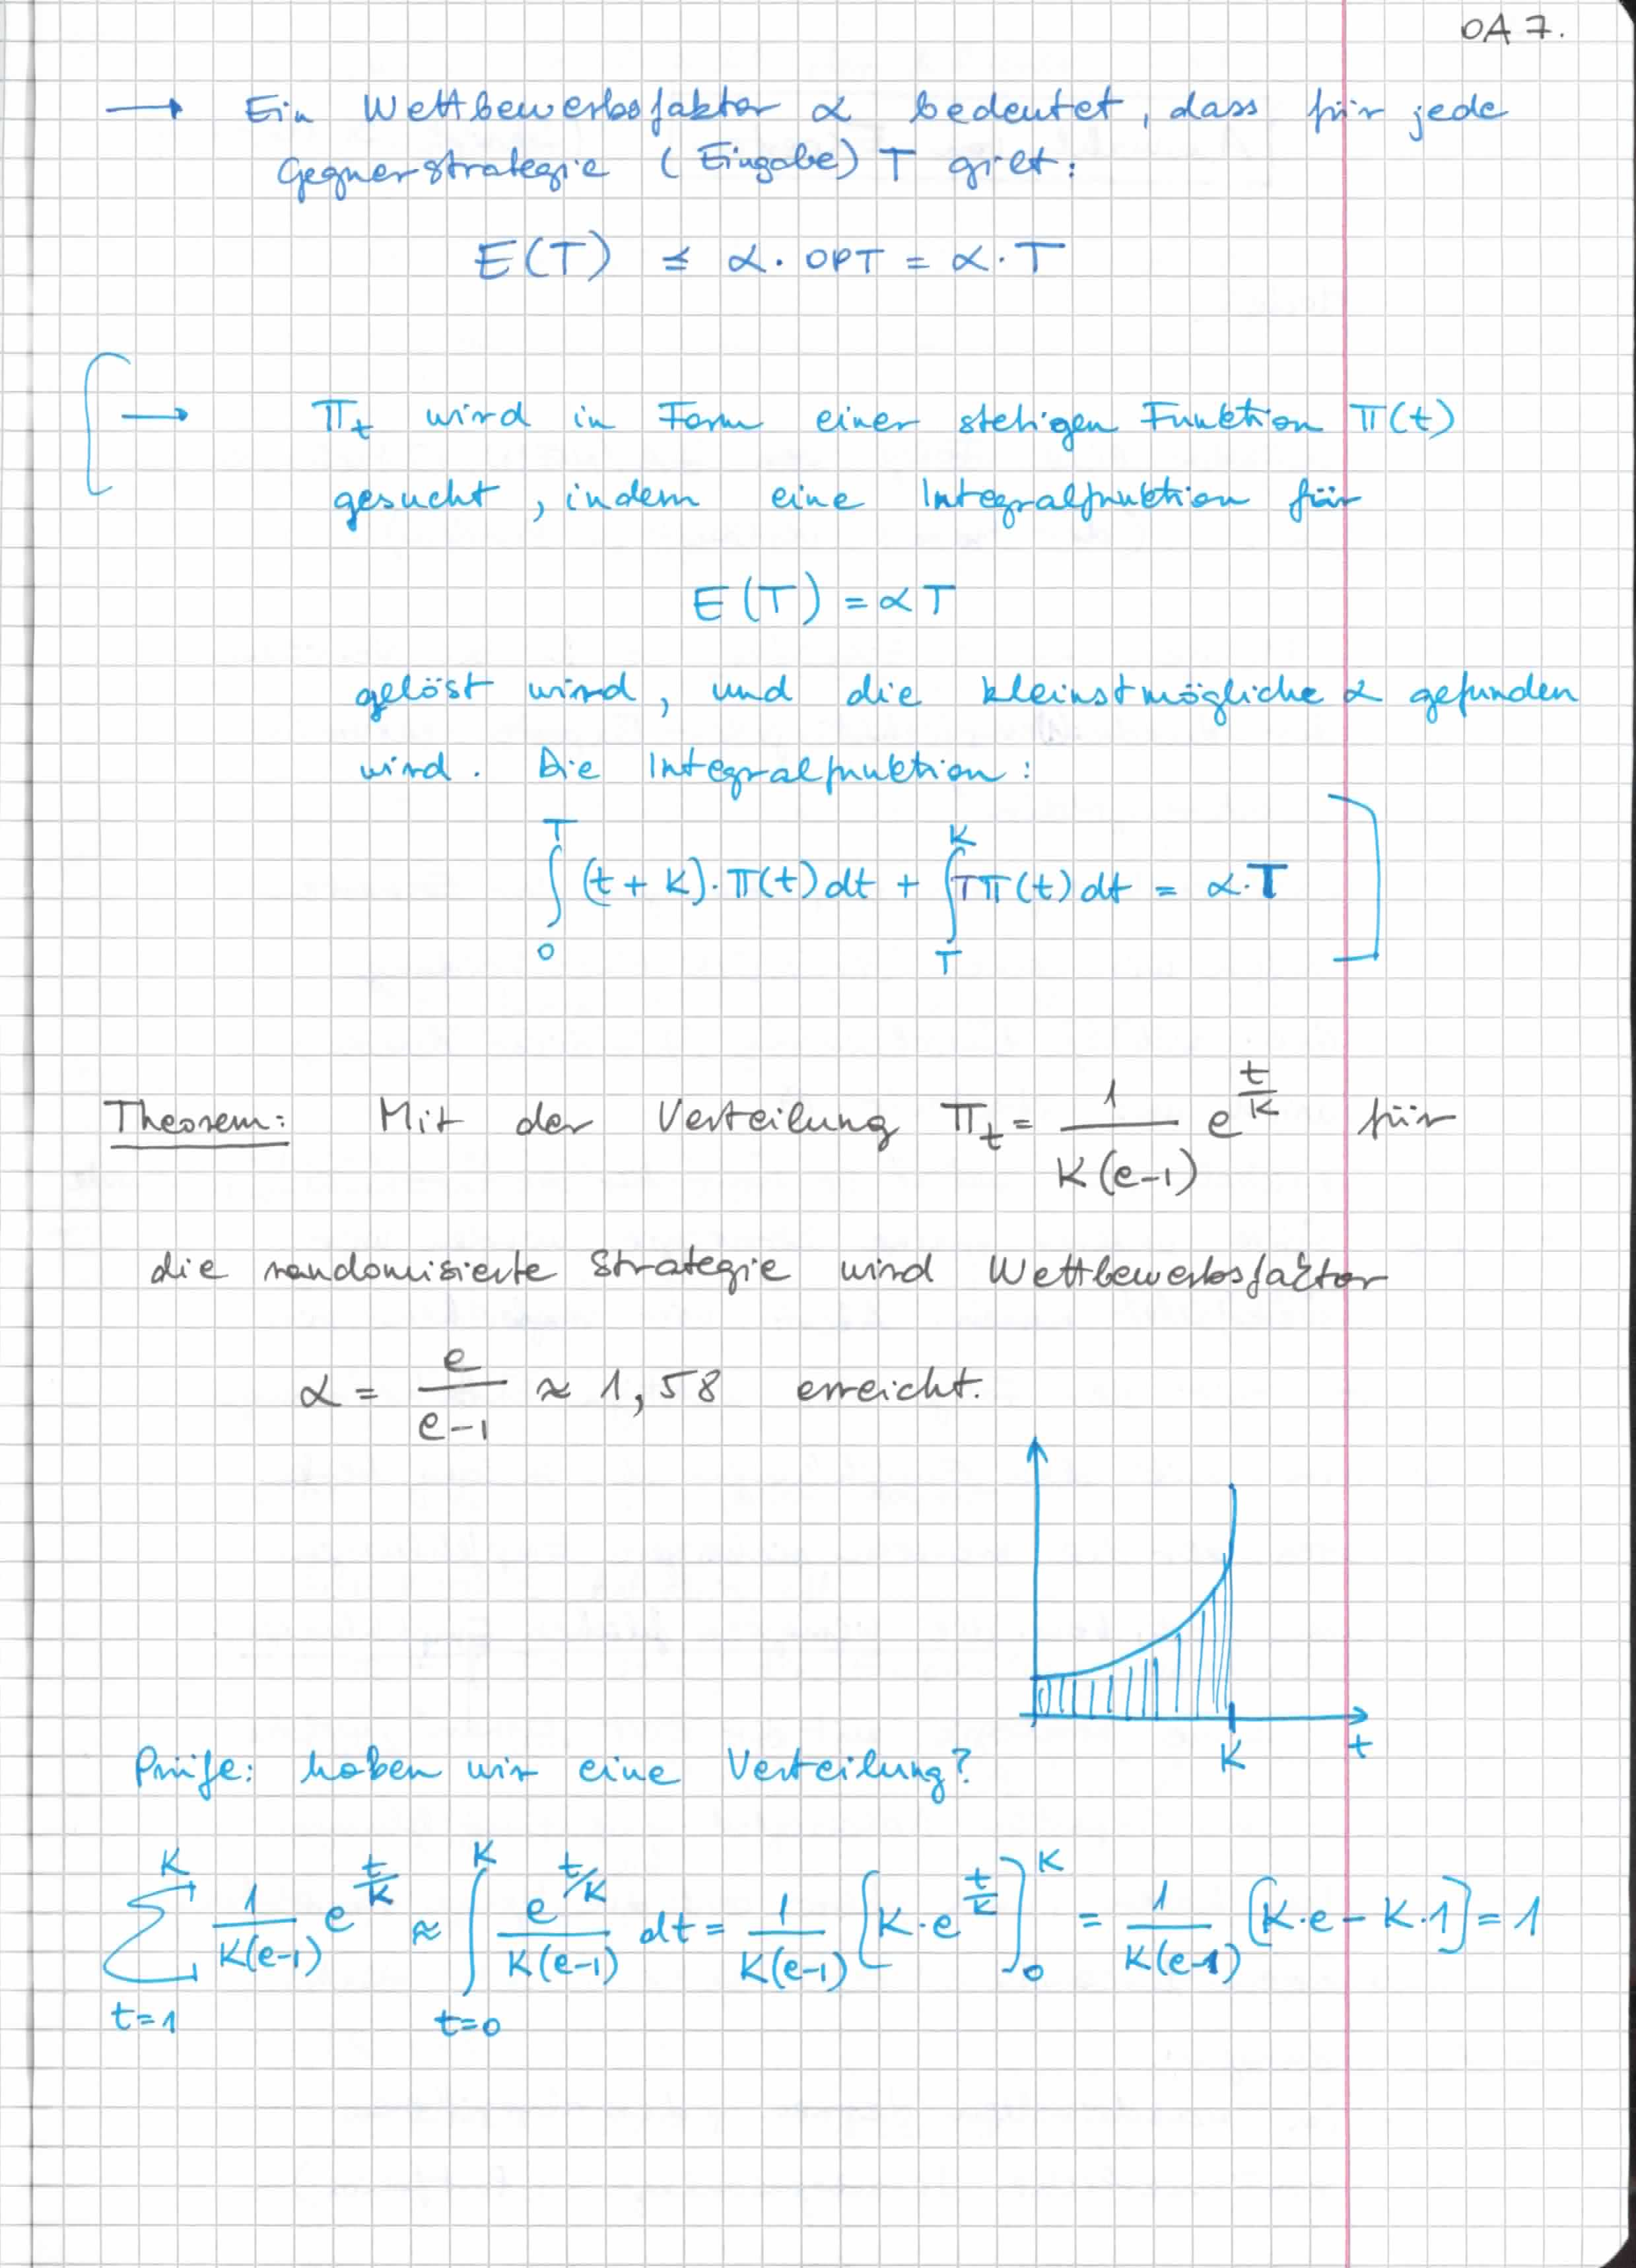 OA 7.
→ Ein Wettbewerbsfaktor α bedeutet, dass für jede
Gegnerstrategie (Eingabe) T gilt:
E(T) ≤ α · OPT = α · T
→ π_t wird in Form einer stetigen Funktion π(t)
gesucht, indem eine Integralfunktion für
E(T) = αT
gelöst wird, und die kleinstmögliche α gefunden
wird. Die Integralfunktion:
∫_0^T (t + K) · π(t) dt + ∫_T^K Tπ(t) dt = α · T
Theorem: Mit der Verteilung π_t = 1/(K(e-1)) e^(t/K) für
die randomisierte Strategie wird Wettbewerbsfaktor
α = e/(e-1) ≈ 1,58 erreicht.
K t
Prüfe: haben wir eine Verteilung?
∑_{t=1}^K 1/(K(e-1)) e^(t/K) ≈ ∫_{t=0}^K e^(t/K)/(K(e-1)) dt = 1/(K(e-1)) [K·e^(t/K)]_0^K = 1/(K(e-1)) [K·e - K·1] = 1